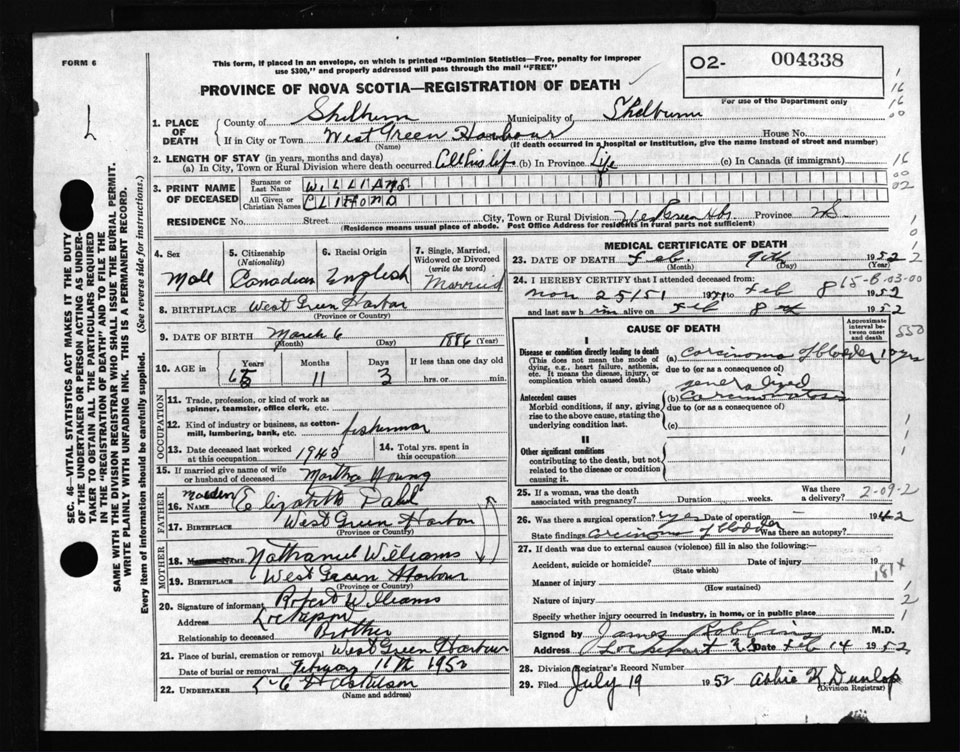 FORM 6
This form, if placed in an envelope, on which is printed "Dominion Statistics—Free, penalty for improper
use $300," and properly addressed will pass through the mail "FREE"
O2- 004338
For use of the Department only
PROVINCE OF NOVA SCOTIA—REGISTRATION OF DEATH
L
SEC. 46—VITAL STATISTICS ACT MAKES IT THE DUTY
OF THE UNDERTAKER OR PERSON ACTING AS UNDER-
TAKER TO OBTAIN ALL THE PARTICULARS REQUIRED
IN THE "REGISTRATION OF DEATH" AND TO FILE THE
SAME WITH THE DIVISION REGISTRAR WHO SHALL ISSUE THE BURIAL PERMIT.
WRITE PLAINLY WITH UNFADING INK. THIS IS A PERMANENT RECORD.
Every item of information should be carefully supplied. (See reverse side for instructions.)
1. PLACE OF DEATH
County of Municipality of
If in City or Town West Green Harbour House No.
(Name) (If death occurred in a hospital or institution, give the name instead of street and number)
2. LENGTH OF STAY (in years, months and days)
(a) In City, Town or Rural Division where death occurred All his life (b) In Province Life (c) In Canada (if immigrant)
3. PRINT NAME OF DECEASED
Surname or Last Name WILLIAMS
All Given or Christian Names
RESIDENCE No. Street City, Town or Rural Division West Green Hbr. Province NS
(Residence means usual place of abode. Post Office Address for residents in rural parts not sufficient)
4. Sex Male
5. Citizenship (Nationality) Canadian
6. Racial Origin English
7. Single, Married, Widowed or Divorced (write the word) Married
8. BIRTHPLACE West Green Harbor
(Province or Country)
9. DATE OF BIRTH March 6 1886
(Month) (Day) (Year)
10. AGE in Years Months Days If less than one day old
65 11 3 hrs. or min.
OCCUPATION
11. Trade, profession, or kind of work as
spinner, teamster, office clerk, etc.
12. Kind of industry or business, as cotton-
mill, lumbering, bank, etc. fisherman
13. Date deceased last worked at this occupation 1943
14. Total yrs. spent in this occupation
15. If married give name of wife
or husband of deceased Martha Young
FATHER
Maiden
16. NAME Elizabeth Dahl
17. BIRTHPLACE West Green Harbor
(Province or Country)
MOTHER
18. Maiden NAME Nathaniel Williams
19. BIRTHPLACE West Green Harbour
(Province or Country)
20. Signature of informant Robert Williams
Address Lockeport
Relationship to deceased Brother
21. Place of burial, cremation or removal West Green Harbour
Date of burial or removal February 11th 1952
22. UNDERTAKER
(Name and address)
MEDICAL CERTIFICATE OF DEATH
23. DATE OF DEATH Feb. 9th 1952
(Month) (Day) (Year)
24. I HEREBY CERTIFY that I attended deceased from:
Nov 25/51 to Feb 8 1952
and last saw him alive on Feb 8 1952
CAUSE OF DEATH
Approximate interval between onset and death
I
Disease or condition directly leading to death
(This does not mean the mode of
dying, e.g., heart failure, asthenia,
etc. It means the disease, injury, or
complication which caused death.)
(a) Carcinoma of bladder 10 yrs
due to (or as a consequence of)
Antecedent causes
Morbid conditions, if any, giving
rise to the above cause, stating the
underlying condition last.
generalized
(b) Carcinomatosis
due to (or as a consequence of)
(c)
II
Other significant conditions
contributing to the death, but not
related to the disease or condition
causing it.
25. If a woman, was the death
associated with pregnancy? Duration weeks. Was there a delivery? 2-09-2
26. Was there a surgical operation? yes Date of operation 1942
State findings carcinoma of bladder Was there an autopsy?
27. If death was due to external causes (violence) fill in also the following:—
Accident, suicide or homicide? Date of injury 19
(State which)
181X
Manner of injury
(How sustained)
Nature of injury
Specify whether injury occurred in industry, in home, or in public place
Signed by James Robbins M.D.
Address Lockeport N.S. Date Feb 14 1952
28. Division Registrar's Record Number
29. Filed July 19 1952 Abbie K. Dunlop
(Division Registrar)